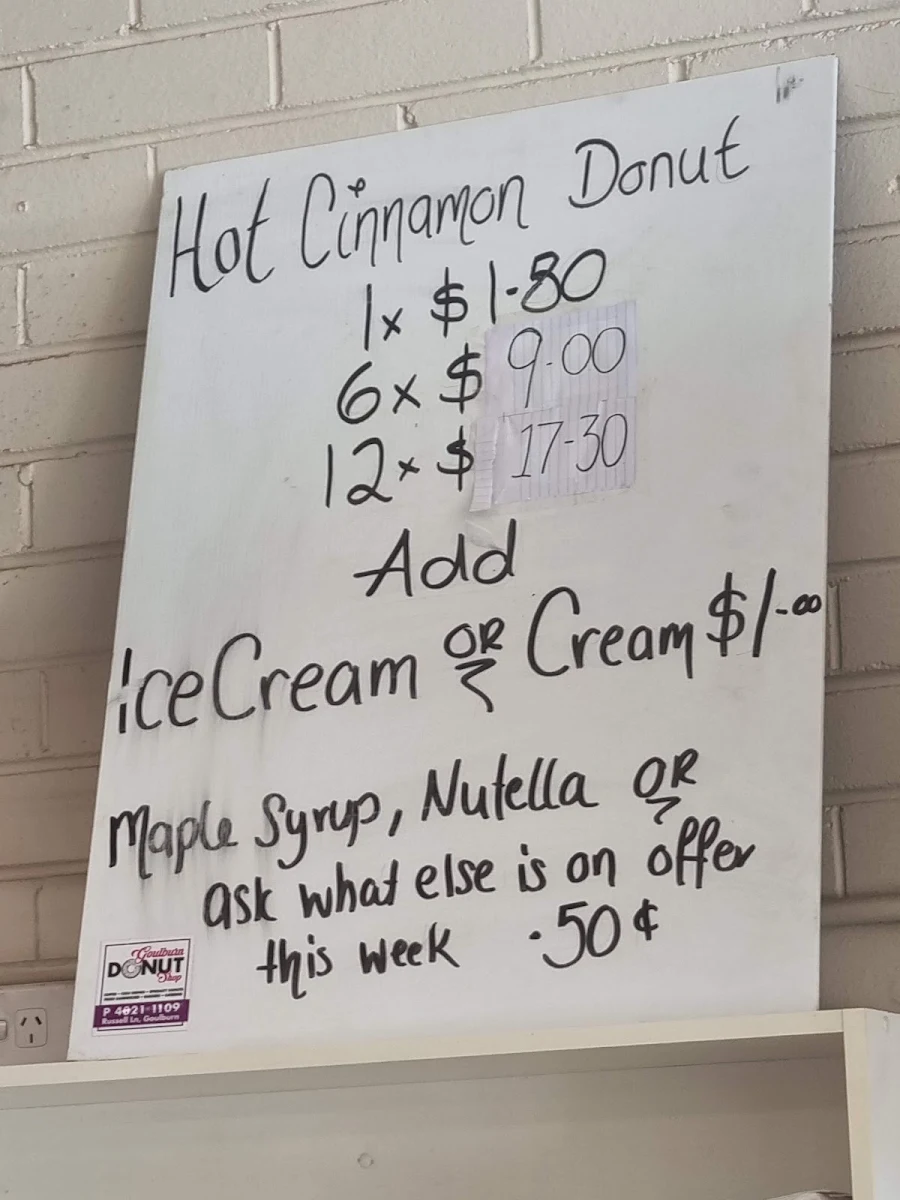 Hot Cinnamon Donut
1x $1.80
6x $ 9.00
12x $ 17-30
Add
Ice Cream OR Cream $1-00
Maple Syrup, Nutella OR
ask what else is on offer
this week .50¢
Goulburn
DONUT
Shop
P 4821 1109
Russell Ln, Goulburn